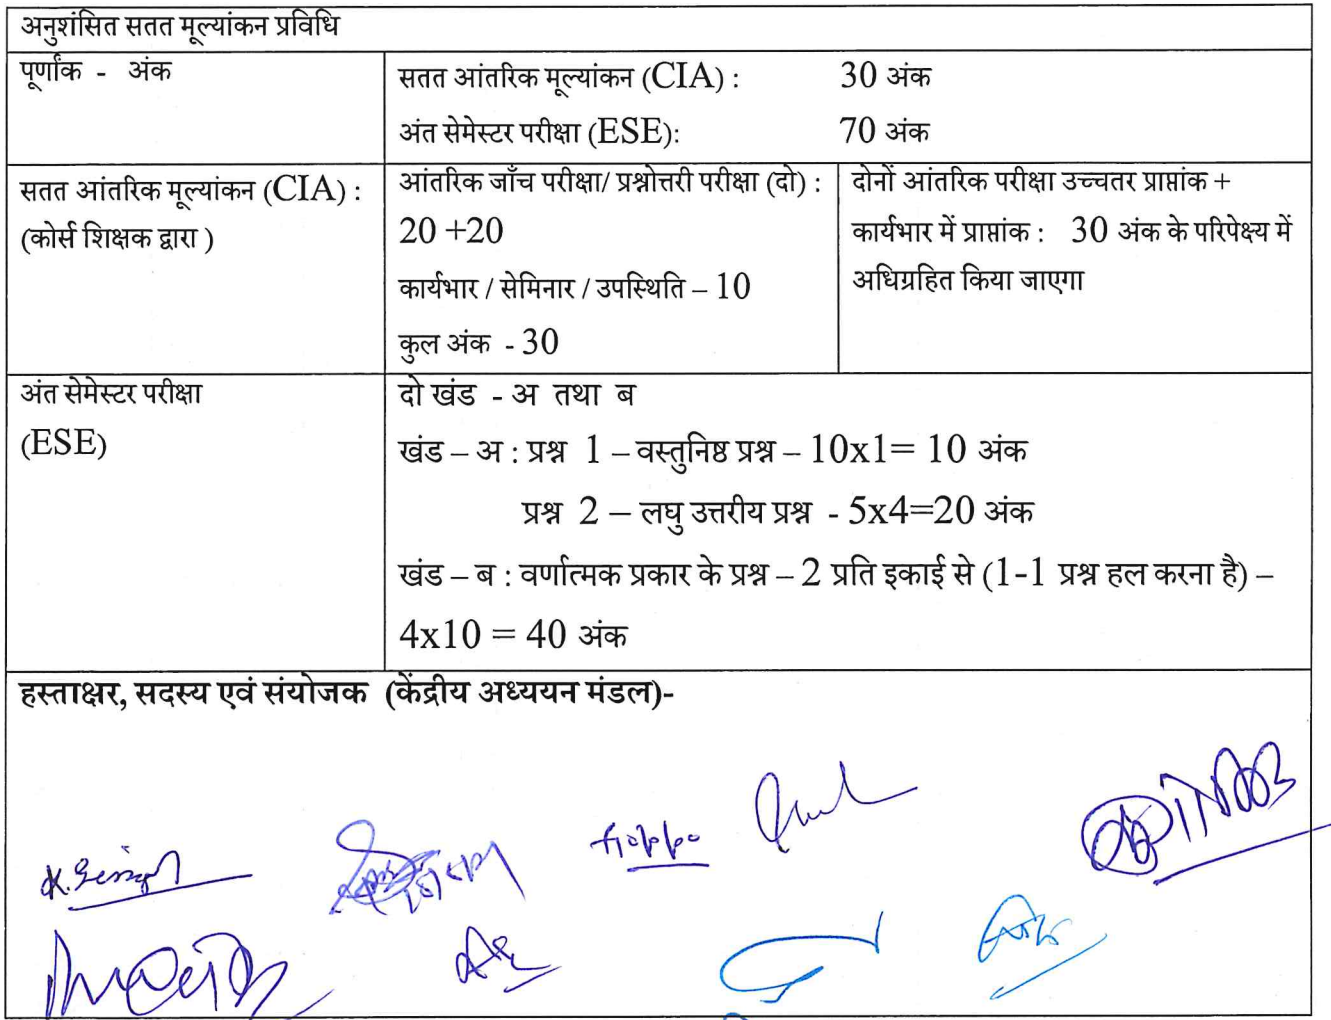 अनुशंसित सतत मूल्यांकन प्रविधि
पूर्णांक - अंक
सतत आंतरिक मूल्यांकन (CIA) : 30 अंक
अंत सेमेस्टर परीक्षा (ESE): 70 अंक
सतत आंतरिक मूल्यांकन (CIA) :
(कोर्स शिक्षक द्वारा )
आंतरिक जाँच परीक्षा/ प्रश्नोत्तरी परीक्षा (दो) :
20 +20
कार्यभार / सेमिनार / उपस्थिति – 10
कुल अंक - 30
दोनों आंतरिक परीक्षा उच्चतर प्राप्तांक +
कार्यभार में प्राप्तांक : 30 अंक के परिपेक्ष्य में
अधिग्रहित किया जाएगा
अंत सेमेस्टर परीक्षा
(ESE)
दो खंड - अ तथा ब
खंड – अ : प्रश्न 1 – वस्तुनिष्ठ प्रश्न – 10x1= 10 अंक
प्रश्न 2 – लघु उत्तरीय प्रश्न - 5x4=20 अंक
खंड – ब : वर्णात्मक प्रकार के प्रश्न – 2 प्रति इकाई से (1-1 प्रश्न हल करना है) –
4x10 = 40 अंक
हस्ताक्षर, सदस्य एवं संयोजक (केंद्रीय अध्ययन मंडल)-
K. Singh